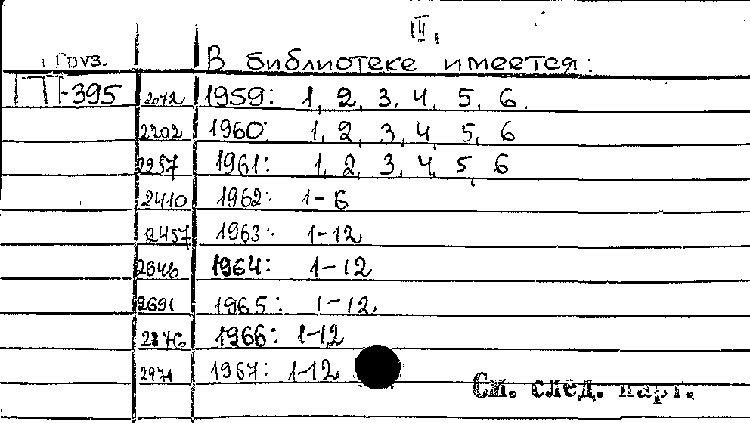 III.
Груз. В библиотеке имеется:
П-395 2072 1959: 1, 2, 3, 4, 5, 6.
2202 1960: 1, 2, 3, 4, 5, 6
2257 1961: 1, 2, 3, 4, 5, 6
2410 1962: 1-6
2457 1963: 1-12
1964: 1-12
2691 1965: 1-12.
1966: 1-12
2971 1967: 1-12
См. след. карт.